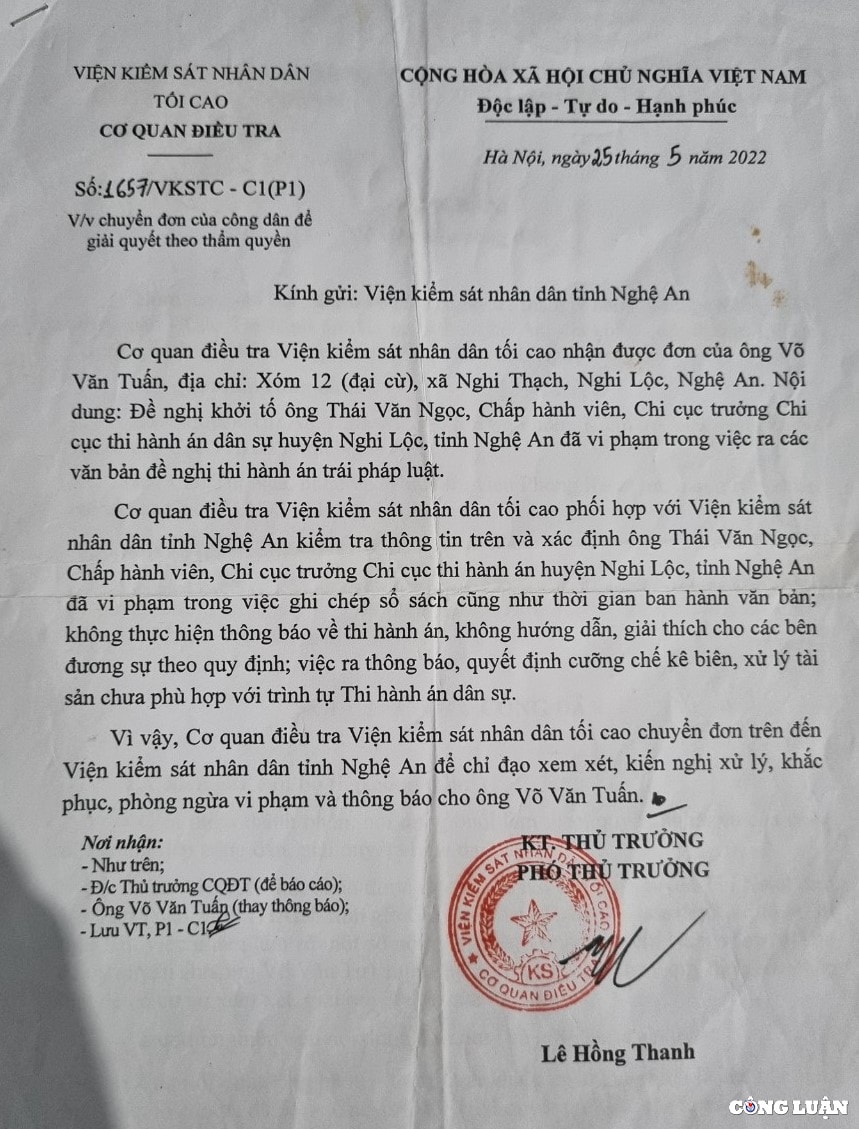 VIỆN KIỂM SÁT NHÂN DÂN
TỐI CAO
CƠ QUAN ĐIỀU TRA
CỘNG HÒA XÃ HỘI CHỦ NGHĨA VIỆT NAM
Độc lập - Tự do - Hạnh phúc
Hà Nội, ngày 25 tháng 5 năm 2022
Số: 1657/VKSTC - C1(P1)
V/v chuyển đơn của công dân để
giải quyết theo thẩm quyền
Kính gửi: Viện kiểm sát nhân dân tỉnh Nghệ An
Cơ quan điều tra Viện kiểm sát nhân dân tối cao nhận được đơn của ông Võ
Văn Tuấn, địa chỉ: Xóm 12 (đại cừ), xã Nghi Thạch, Nghi Lộc, Nghệ An. Nội
dung: Đề nghị khởi tố ông Thái Văn Ngọc, Chấp hành viên, Chi cục trưởng Chi
cục thi hành án dân sự huyện Nghi Lộc, tỉnh Nghệ An đã vi phạm trong việc ra các
văn bản đề nghị thi hành án trái pháp luật.
Cơ quan điều tra Viện kiểm sát nhân dân tối cao phối hợp với Viện kiểm sát
nhân dân tỉnh Nghệ An kiểm tra thông tin trên và xác định ông Thái Văn Ngọc,
Chấp hành viên, Chi cục trưởng Chi cục thi hành án huyện Nghi Lộc, tỉnh Nghệ An
đã vi phạm trong việc ghi chép sổ sách cũng như thời gian ban hành văn bản;
không thực hiện thông báo về thi hành án, không hướng dẫn, giải thích cho các bên
đương sự theo quy định; việc ra thông báo, quyết định cưỡng chế kê biên, xử lý tài
sản chưa phù hợp với trình tự Thi hành án dân sự.
Vì vậy, Cơ quan điều tra Viện kiểm sát nhân dân tối cao chuyển đơn trên đến
Viện kiểm sát nhân dân tỉnh Nghệ An để chỉ đạo xem xét, kiến nghị xử lý, khắc
phục, phòng ngừa vi phạm và thông báo cho ông Võ Văn Tuấn.
Nơi nhận:
- Như trên;
- Đ/c Thủ trưởng CQĐT (để báo cáo);
- Ông Võ Văn Tuấn (thay thông báo);
- Lưu VT, P1 - C1
KT. THỦ TRƯỞNG
PHÓ THỦ TRƯỞNG
VIỆN KIỂM SÁT NHÂN DÂN TỐI CAO
KS
CƠ QUAN ĐIỀU TRA
Lê Hồng Thanh
CÔNG LUẬN